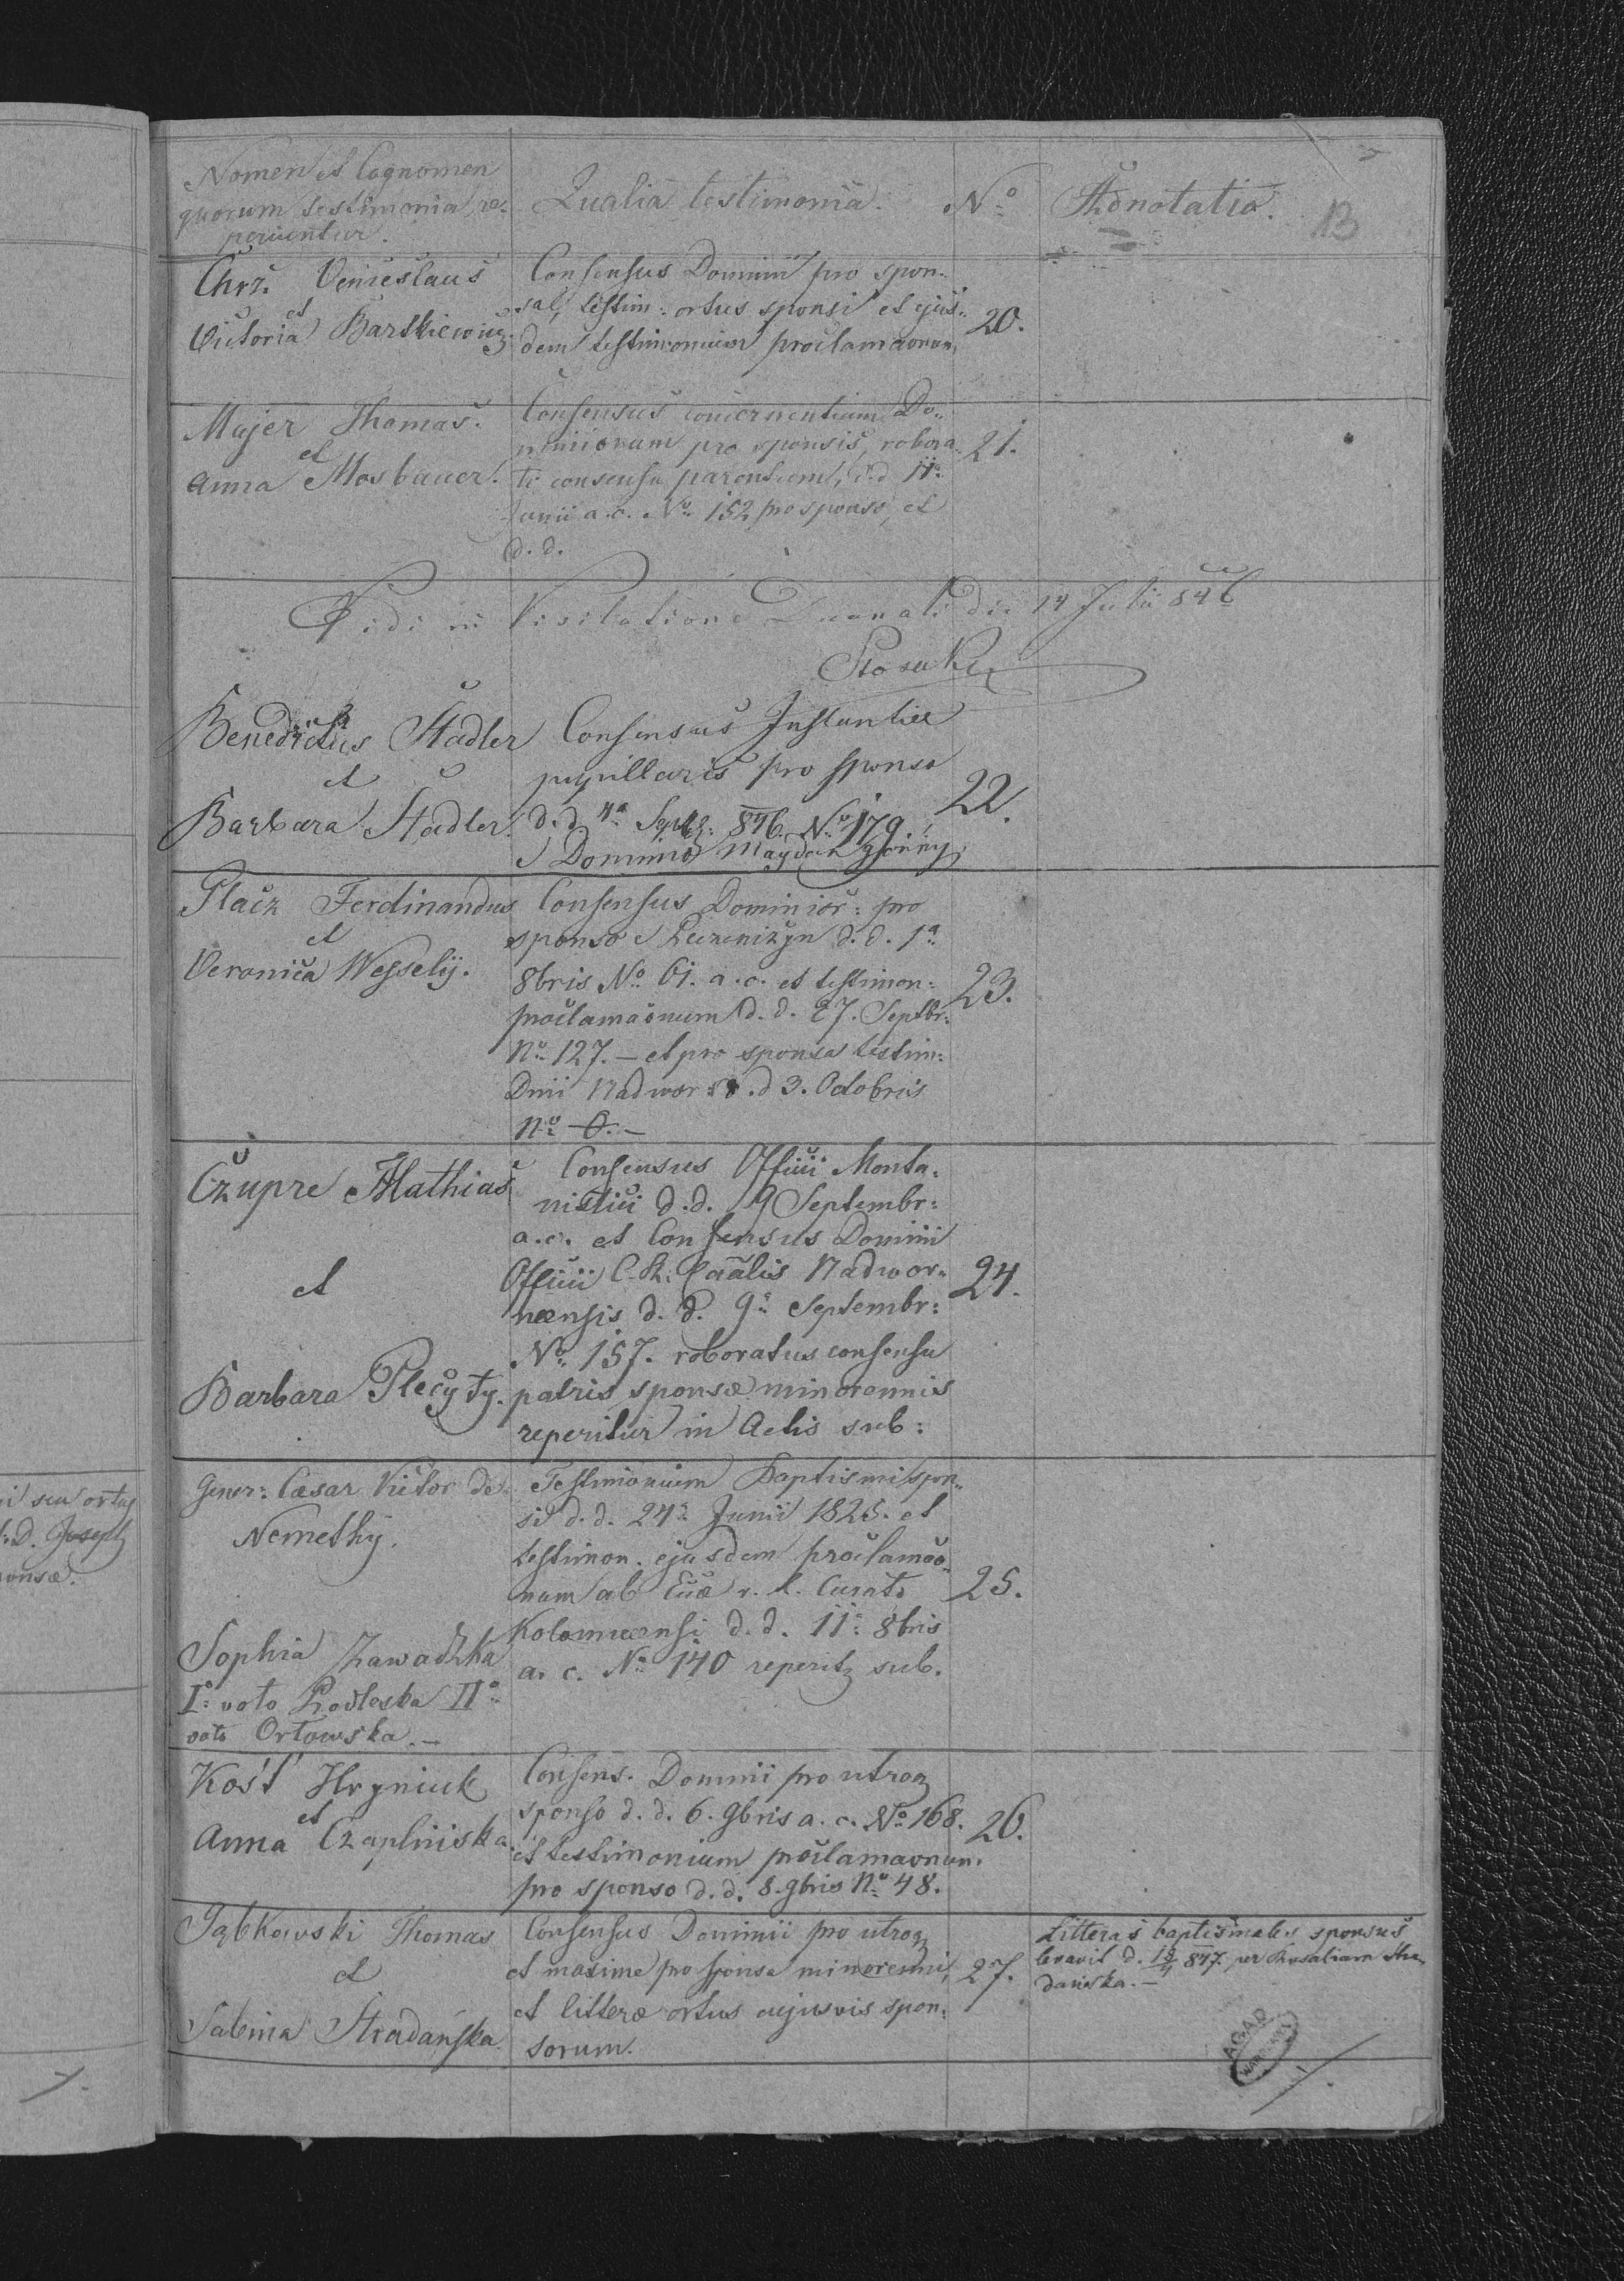 Nomen et Cognomen
quorum testimonia re-
periuntur.
Qualia testimonia.
No
Adnotatio.
13
Chrz. Venceslaus
et
Victoria Bartkiewicz.
Consensus Dominii pro spon-
sal, testim: ortus sponsi et ejus-
dem testimonium proclamaonum
20.
Majer Thomas.
et
Anna Mosbauer.
Consensus concernentium Do-
miniorum pro sponsis, robora-
ti consensu parentum, d.d. 11a
Junii a.c. No 152 pro sponso, et
d.d.
21.
Vidi in Visitatione Decanali die 14 Julii 846
Benedictus Stadler
et
Barbara Stadler.
Consensus Instantiae
pupillaris pro sponso
d.d. 4a Septb: 846. No 179.
e Dominio Maydan gorny
22.
Placz Ferdinandus
et
Veronica Wessely.
Consensus Dominior: pro
sponso e Peczenizyn d.d. 1a
8bris No 61. a.c. et testimon:
proclamaonum d.d. 27. Septbr:
No 127. — et pro sponsa testim:
Dnii Nadwor: d.d 3. Octobris
No 0. —
23.
Czupre Mathias
et
Barbara Plecyty.
Consensus Officii Monta-
nistici d.d. 9 Septembr:
a.c. et Consensus Dominii
Officii C.R. Caalis Nadwor-
naensis d.d. 9a Septembr:
No 157. roboratus consensu
patris sponsae minorennis
reperitur in Actis sub:
24.
Gener: Caesar Victor de
Nemethy.
Sophia Zawadzka
Io voto Podleska IIo
voto Orłowska. —
Testimonium Baptismi spon-
si d.d. 24a Junii 1825. et
testimon. ejusdem proclamao-
num ab Ecca r. l. Curato
Kolomaeensi d.d. 11a 8bris
a. c. No 140 reperitz sub.
25.
Kość Hryniuk
et
Anna Czaplińska.
Consens. Dominii pro utroq
sponso d.d. 6. 9bris a.c. No 168.
et testimonium proclamaonum.
pro sponso d.d. 8. 9bris No 48.
26.
Ząbkowski Thomas
et
Sabina Stradańska.
Consensus Dominii pro utroq
et maxime pro sponsa minorenni,
et litterae ortus cujusvis spon-
sorum.
27.
Litteras baptismales sponsus
levavit d. 847. per Rosaliam Stra-
danska. —
AGAD
WARSZAWA
i seu ortus
: D. Joseph
onsae.